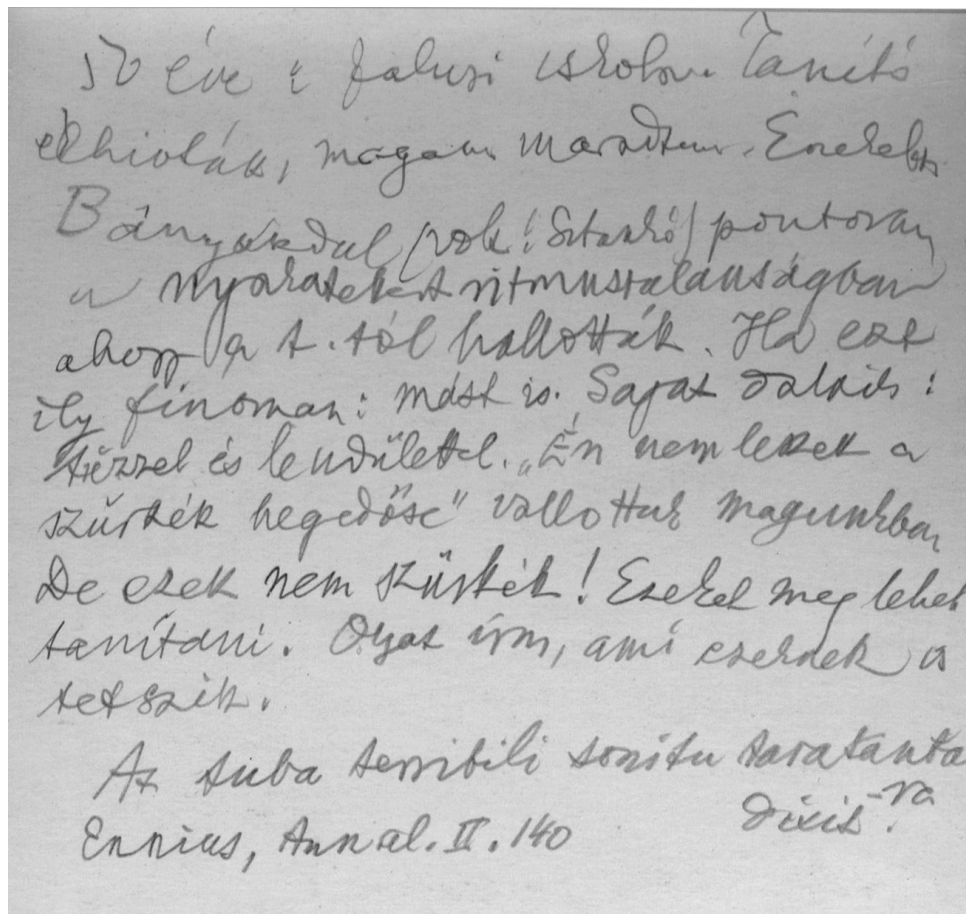 50 éve a falusi iskola. Tanító
elhivták, magam maradtam. Énekeltek
Bányászdal pontosan,
a nyakatekert ritmustalanságban
ahogy a t.-tól hallották. Ha ezt
ily finoman: mást is. Saját dalaik:
tűzzel és lendülettel. „Én nem leszek a
szürkék hegedőse" vallottuk magunkban
De ezek nem szürkék! Ezeket meg lehet
tanítani. Olyat írni, ami ezeknek is
tetszik.
At tuba terribili sonitu taratantara
dixit.
Ennius, Annal. II. 140